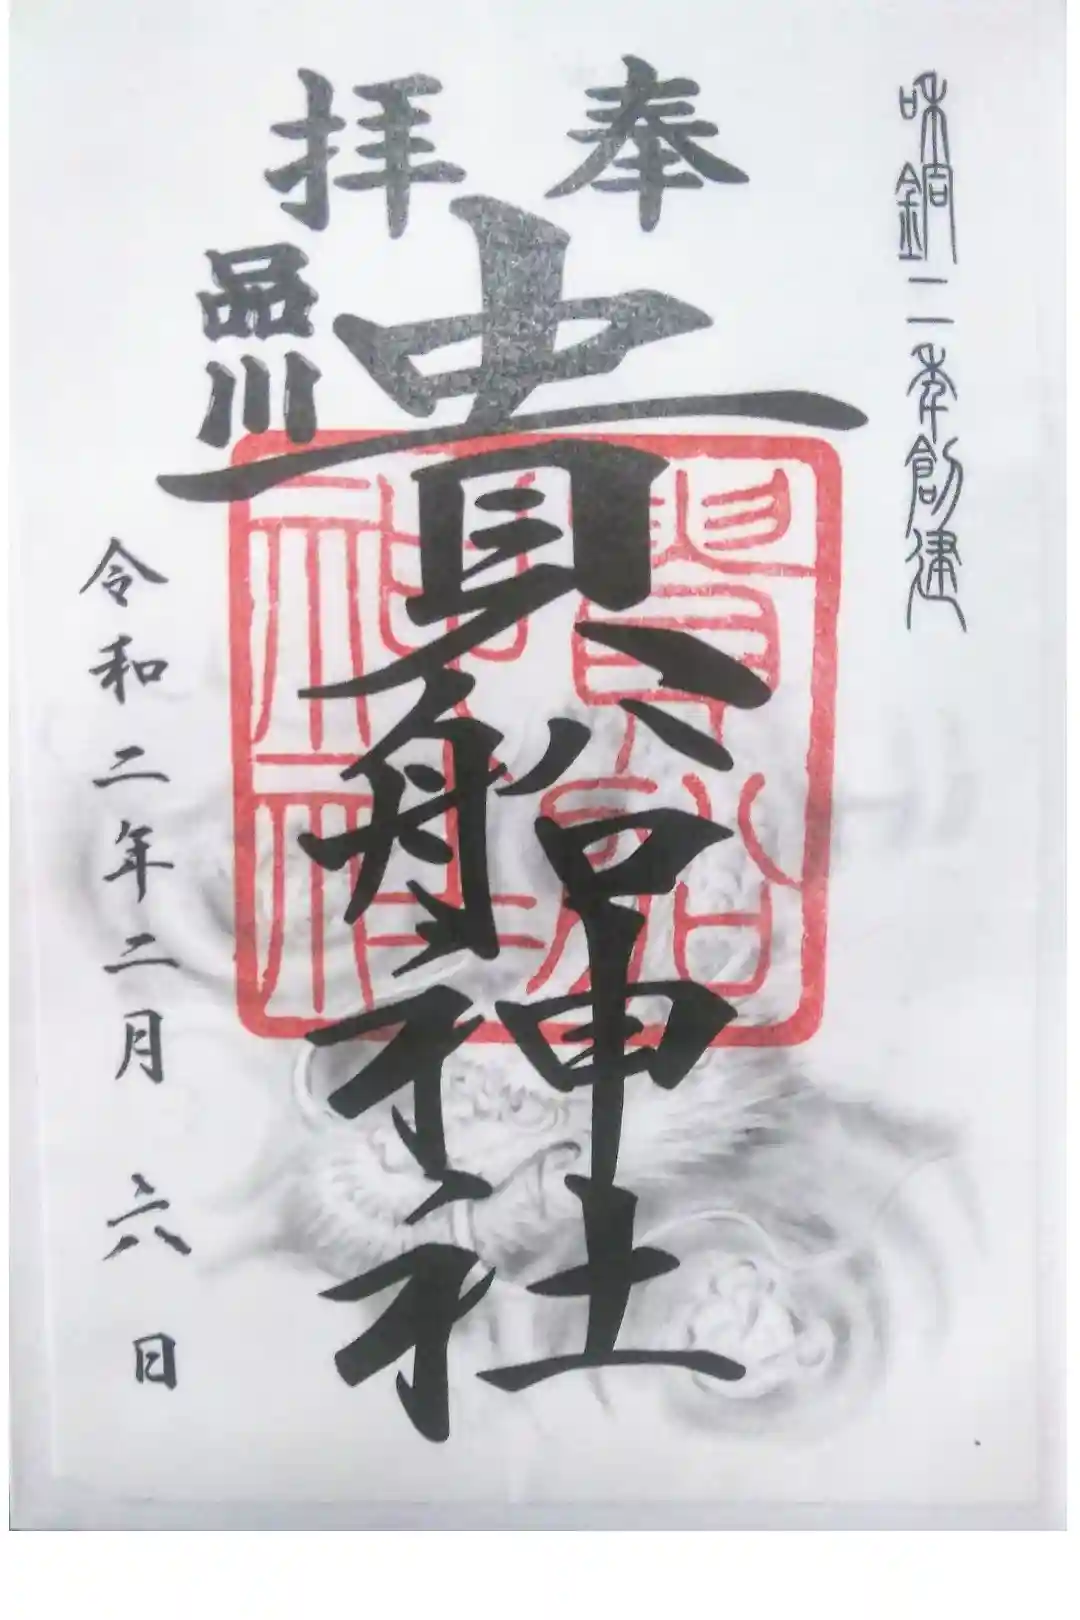 和銅二年創建
奉拝
貴船神社
品川
令和二年二月六日
貴船神社